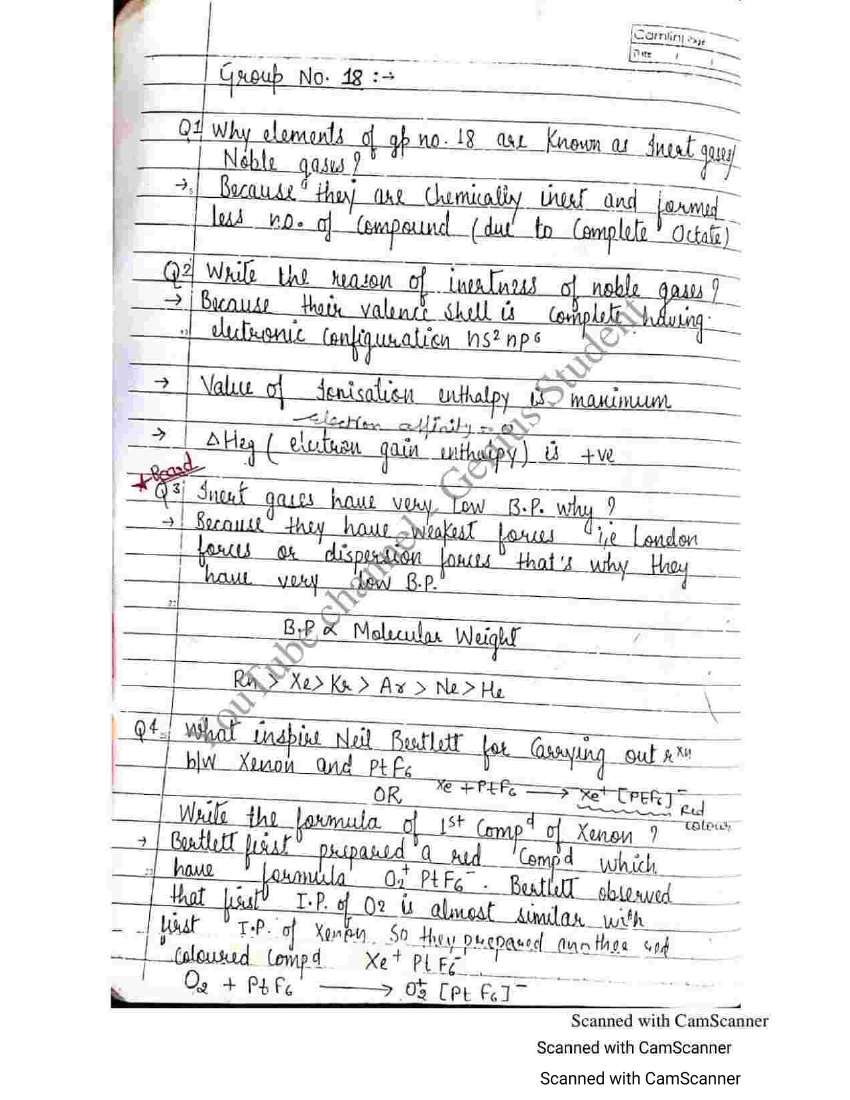 Camlin Page
Date / /
Group No. 18 :→
Q1 Why elements of gp no. 18 are Known as Inert gases/
Noble gases?
→ Because they are chemically inert and formed
less no. of compound (due to complete Octate)
Q2 Write the reason of inertness of noble gases?
→ Because their valence shell is complete having
electronic configuration ns² np⁶
→ Value of Ionisation enthalpy is maximum
electron affinity = 0
→ ΔHeg (electron gain enthalpy) is +ve
★ Board
Q3 Inert gases have very low B.P. why ?
→ Because they have weakest forces i,e London
forces or dispersion forces that's why they
have very low B.P.
B.P ∝ Molecular Weight
Rn > Xe > Kr > Ar > Ne > He
Q4. What inspire Neil Bertlett for Carrying out rxn
b/w Xenon and PtF₆
Xe + PtF₆ ⟶ Xe⁺ [PtF₆]⁻
OR
Red
colour
Write the formula of 1st Compd of Xenon ?
→ Bertlett first prepared a red Compd which
have formula O₂⁺ PtF₆⁻. Bertlett observed
that first I.P. of O₂ is almost similar with
first I.P. of Xenon. So they prepared another red
coloured Compd Xe⁺ PtF₆⁻
O₂ + PtF₆ ⟶ O₂⁺ [PtF₆]⁻
YouTube channel - Genius Student
Scanned with CamScanner
Scanned with CamScanner
Scanned with CamScanner